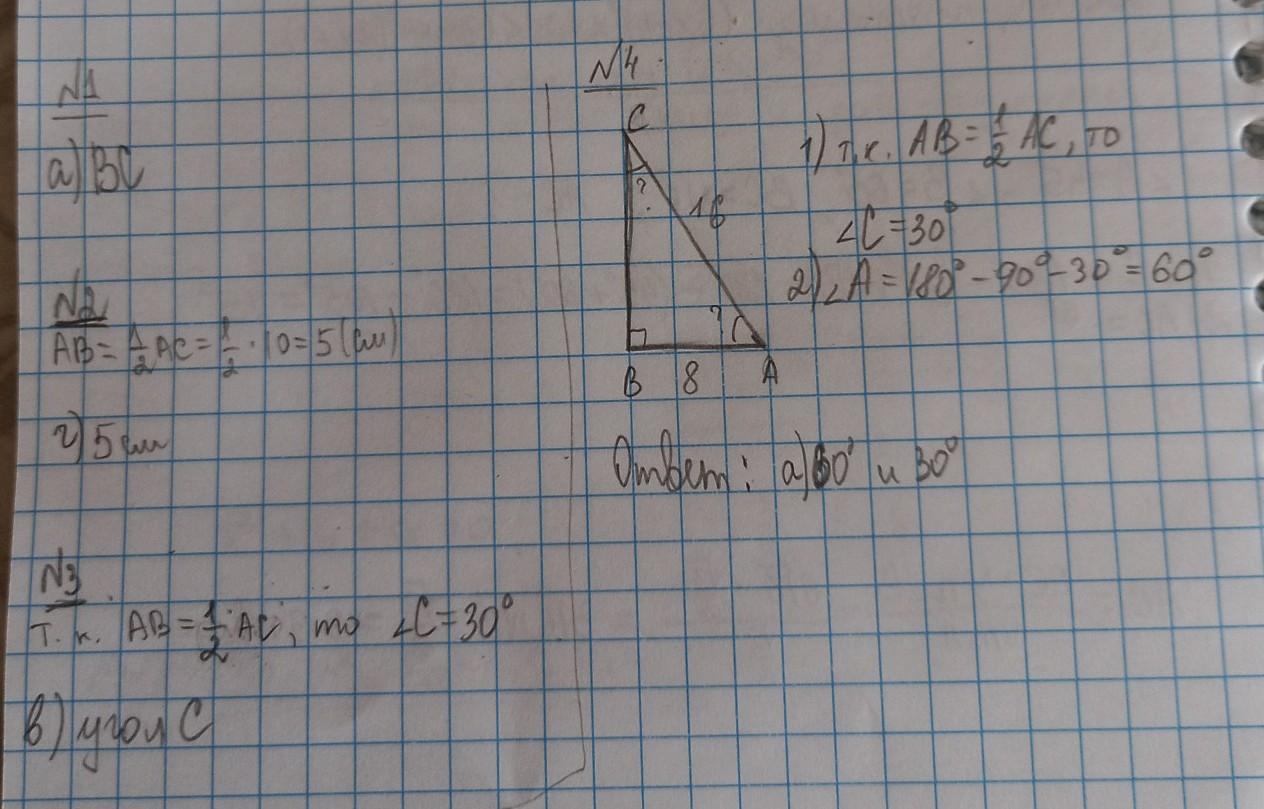 N1
а) BC
N2
AB = 1/2 AC = 1/2 · 10 = 5 (см)
г) 5 см
N3
т. к. AB = 1/2 AC, то ∠C = 30°
в) угол C
N4
C
?
16
?
B 8 A
1) т.к. AB = 1/2 AC, то
∠C = 30°
2) ∠A = 180° - 90° - 30° = 60°
Ответ: а) 60° и 30°